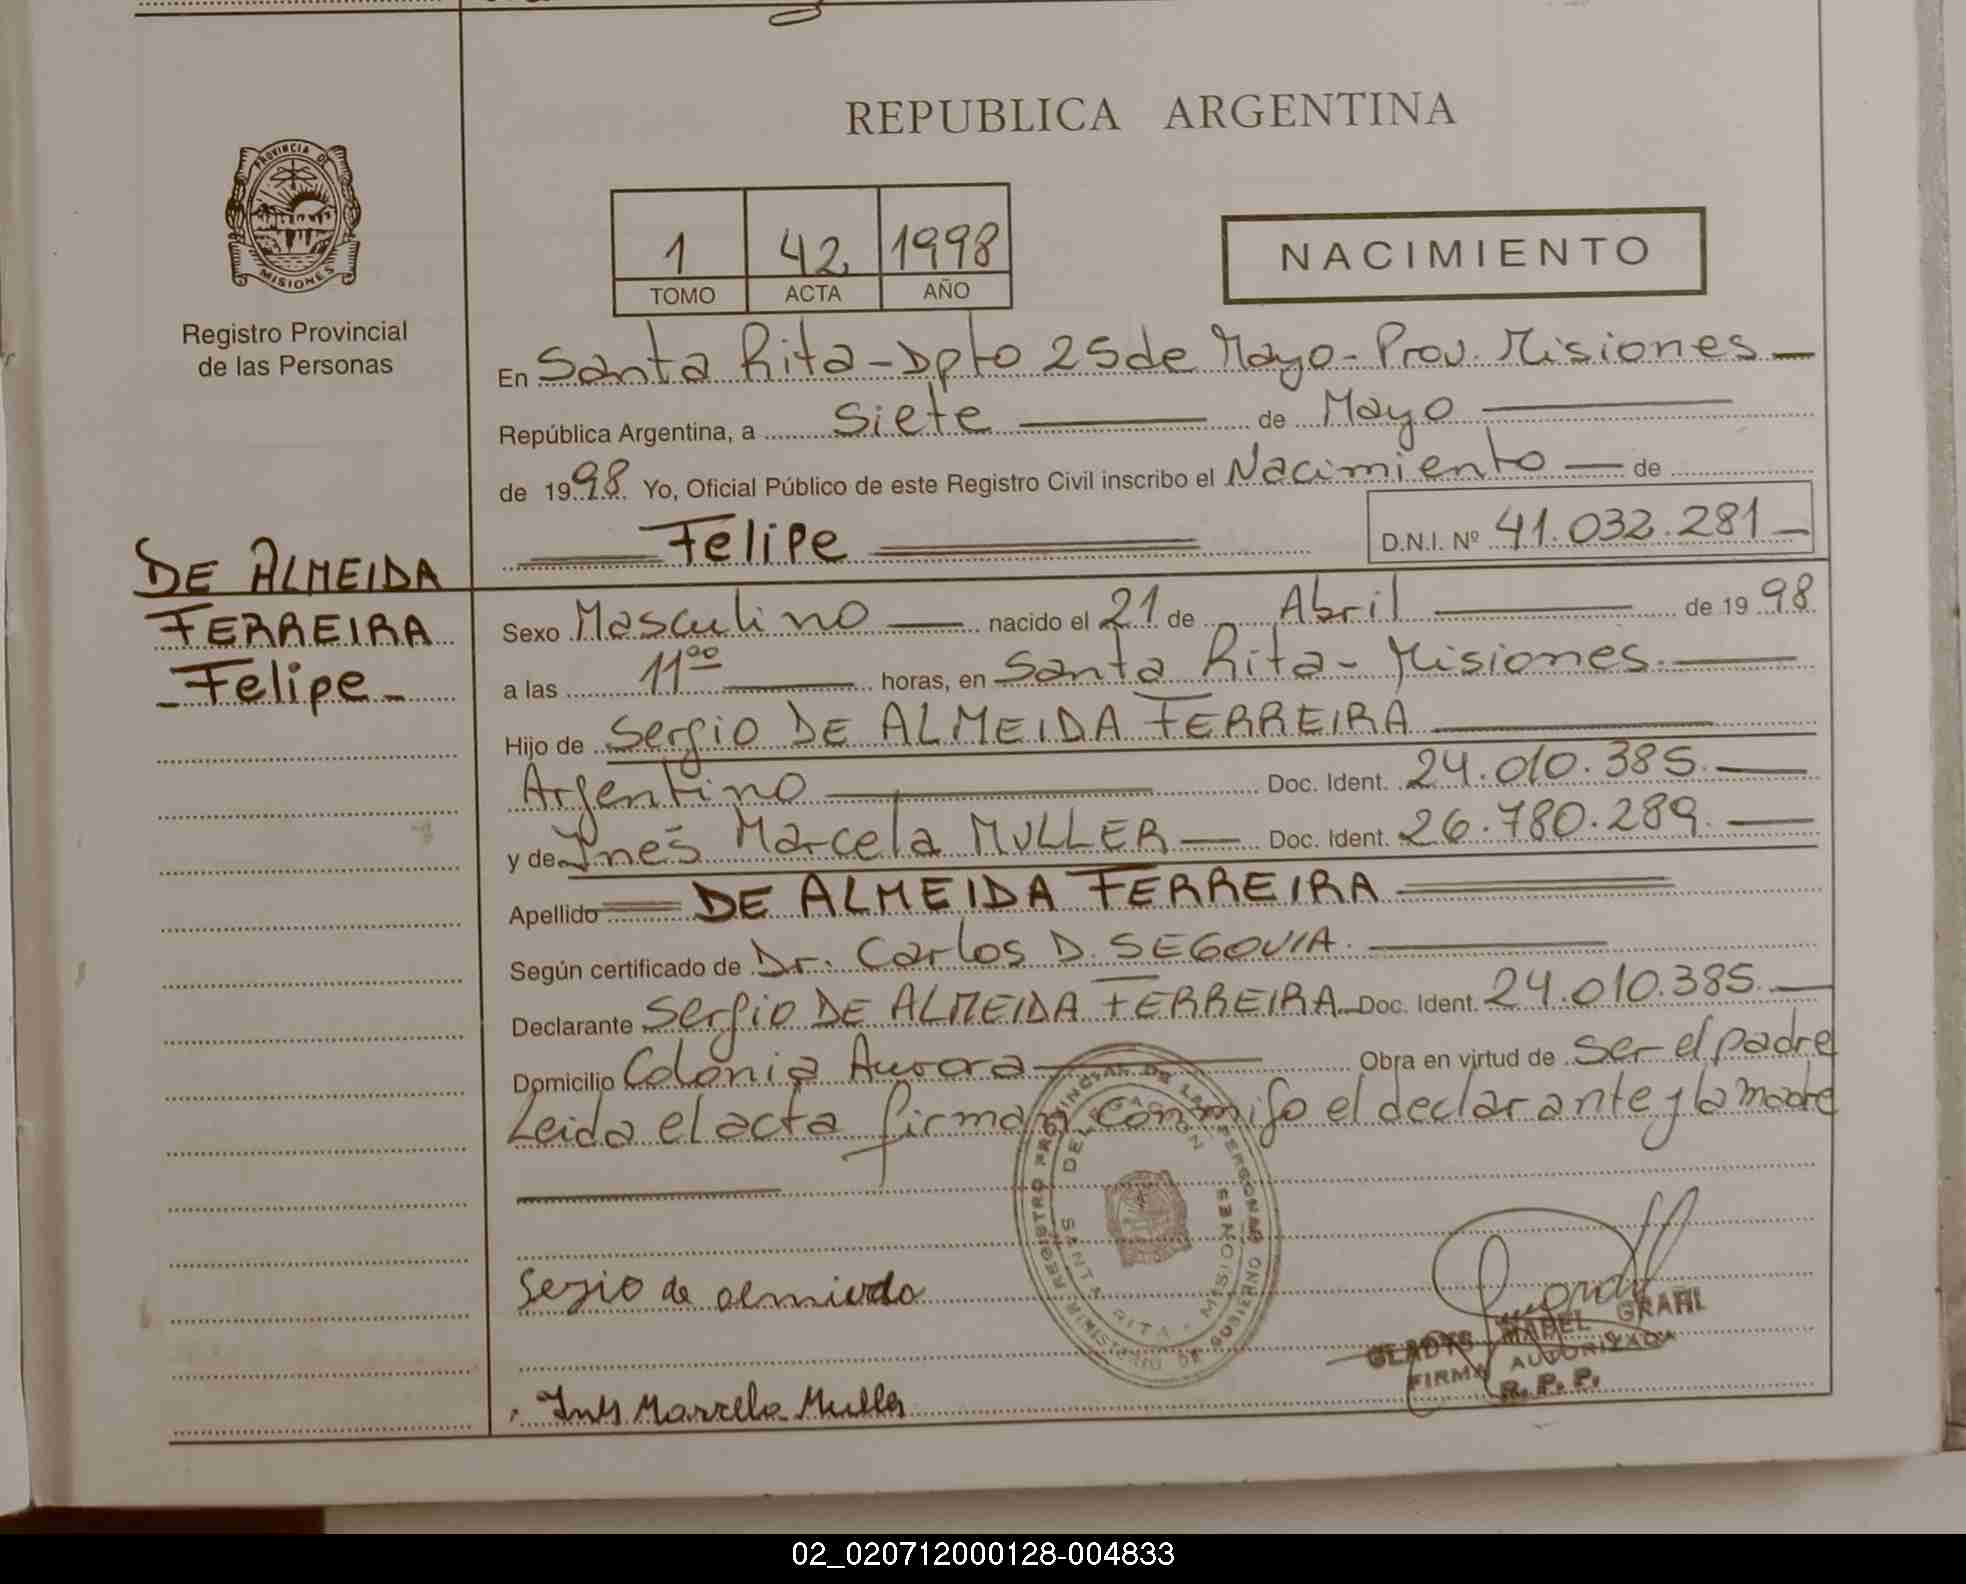 REPUBLICA ARGENTINA
PROVINCIA DE
MISIONES
Registro Provincial
de las Personas
1 42 1998
TOMO ACTA AÑO
NACIMIENTO
En Santa Rita - Dpto 25 de Mayo - Prov. Misiones
República Argentina, a siete de Mayo
de 1998 Yo, Oficial Público de este Registro Civil inscribo el Nacimiento de
Felipe D.N.I. Nº 41.032.281
DE ALMEIDA
FERREIRA
Felipe
Sexo Masculino nacido el 21 de Abril de 1998
a las 11 00 horas, en Santa Rita - Misiones
Hijo de Sergio DE ALMEIDA FERREIRA
Argentino Doc. Ident. 24.010.385
y de Inés Marcela MULLER Doc. Ident. 26.780.289
Apellido DE ALMEIDA FERREIRA
Según certificado de Dr. Carlos D. SEGOVIA
Declarante Sergio DE ALMEIDA FERREIRA Doc. Ident. 24.010.385
Domicilio Colonia Aurora Obra en virtud de ser el padre
Leida el acta firman conmigo el declarante y la madre
REGISTRO PROVINCIAL DE LAS PERSONAS
MINISTERIO DE GOBIERNO
SANTA RITA - MISIONES
Sezio de almieda
GLADYS MABEL GRAHL
FIRMA AUTORIZADA
R. P. P.
Inés Marcela Muller
02_020712000128-004833